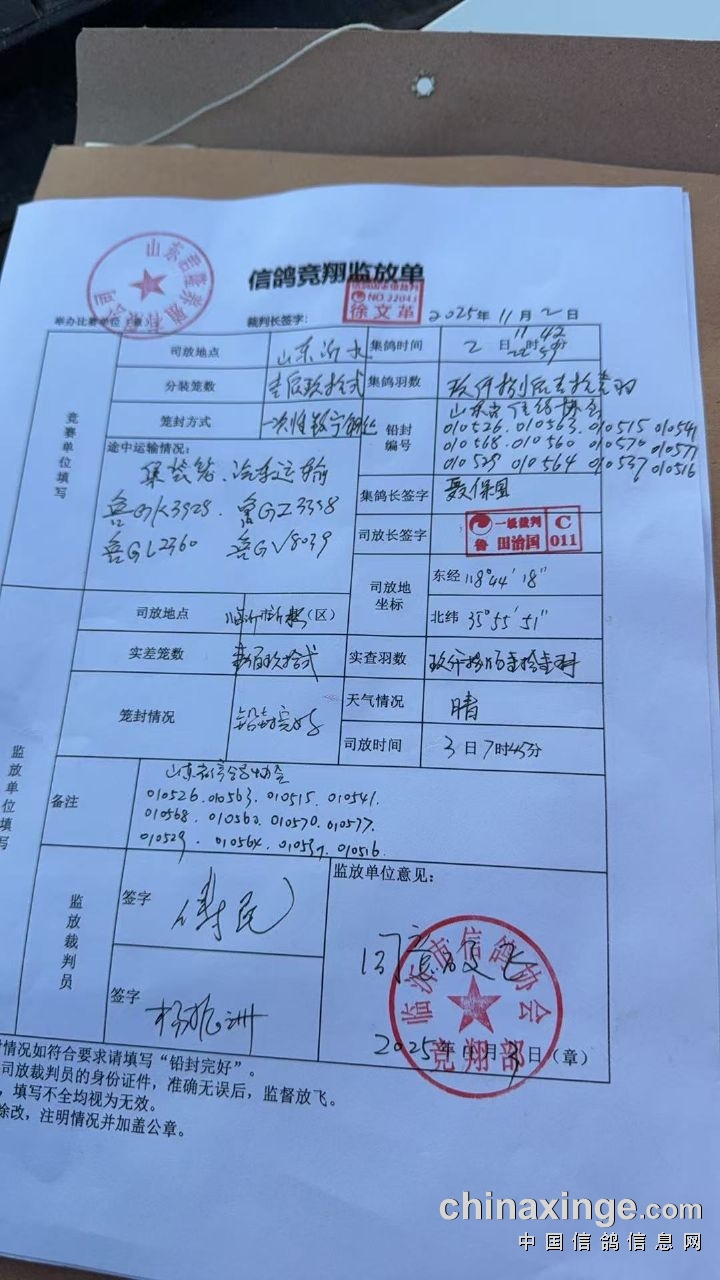 信鸽竞翔监放单
举办比赛单位
裁判长签字:
NO.22041
徐文革
2025年 11月 2日
竞赛单位填写
司放地点 山东沂水 集鸽时间 2日
分装笼数 壹佰玖拾贰 集鸽羽数
笼封方式 一次性数字钢丝 铅封编号
010526. 010563. 010515 010541
010568. 010560 010570 010577
010529 010564 010537 010516
途中运输情况:
集装箱.汽车运输
鲁GK3928. 鲁GZ3358
鲁GL2360 鲁GV8039
集鸽长签字 聂保国
司放长签字 一级裁判 C
鲁 田治国 011
司放地坐标 东经 118°44′18″
北纬 35°55′51″
监放单位填写
司放地点 (区)
实差笼数 实查羽数
笼封情况 铅封完好 天气情况 晴
司放时间 3日7时45分
备注
山东省信鸽协会
010526.010563. 010515. 010541.
010568. 010560. 010570. 010577.
010529. 010564. 010537. 010516.
监放裁判员
签字
签字
监放单位意见:
同意放飞
临沂市信鸽协会
竞翔部
2025年11月3日(章)
情况如符合要求请填写“铅封完好”。
司放裁判员的身份证件，准确无误后，监督放飞。
，填写不全均视为无效。
涂改，注明情况并加盖公章。
chinaxinge.com
中国信鸽信息网